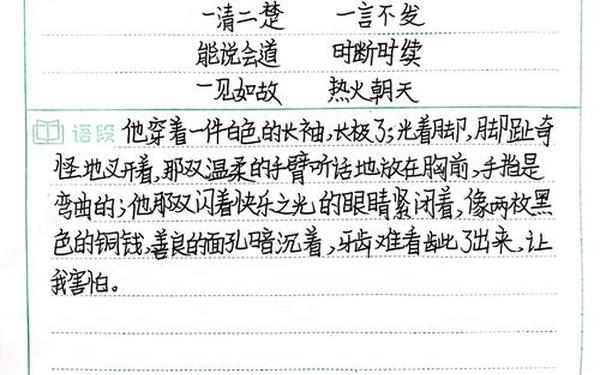 一清二楚 一言不发
能说会道 时断时续
一见如故 热火朝天
语段 他穿着一件白色的长袖,长极了;光着脚,脚趾奇
怪地叉开着,那双温柔的手臂听话地放在胸前,手指是
弯曲的;他那双闪着快乐之光的眼睛紧闭着,像两枚黑
色的铜钱,善良的面孔暗沉着,牙齿难看龇了出来,让
我害怕。